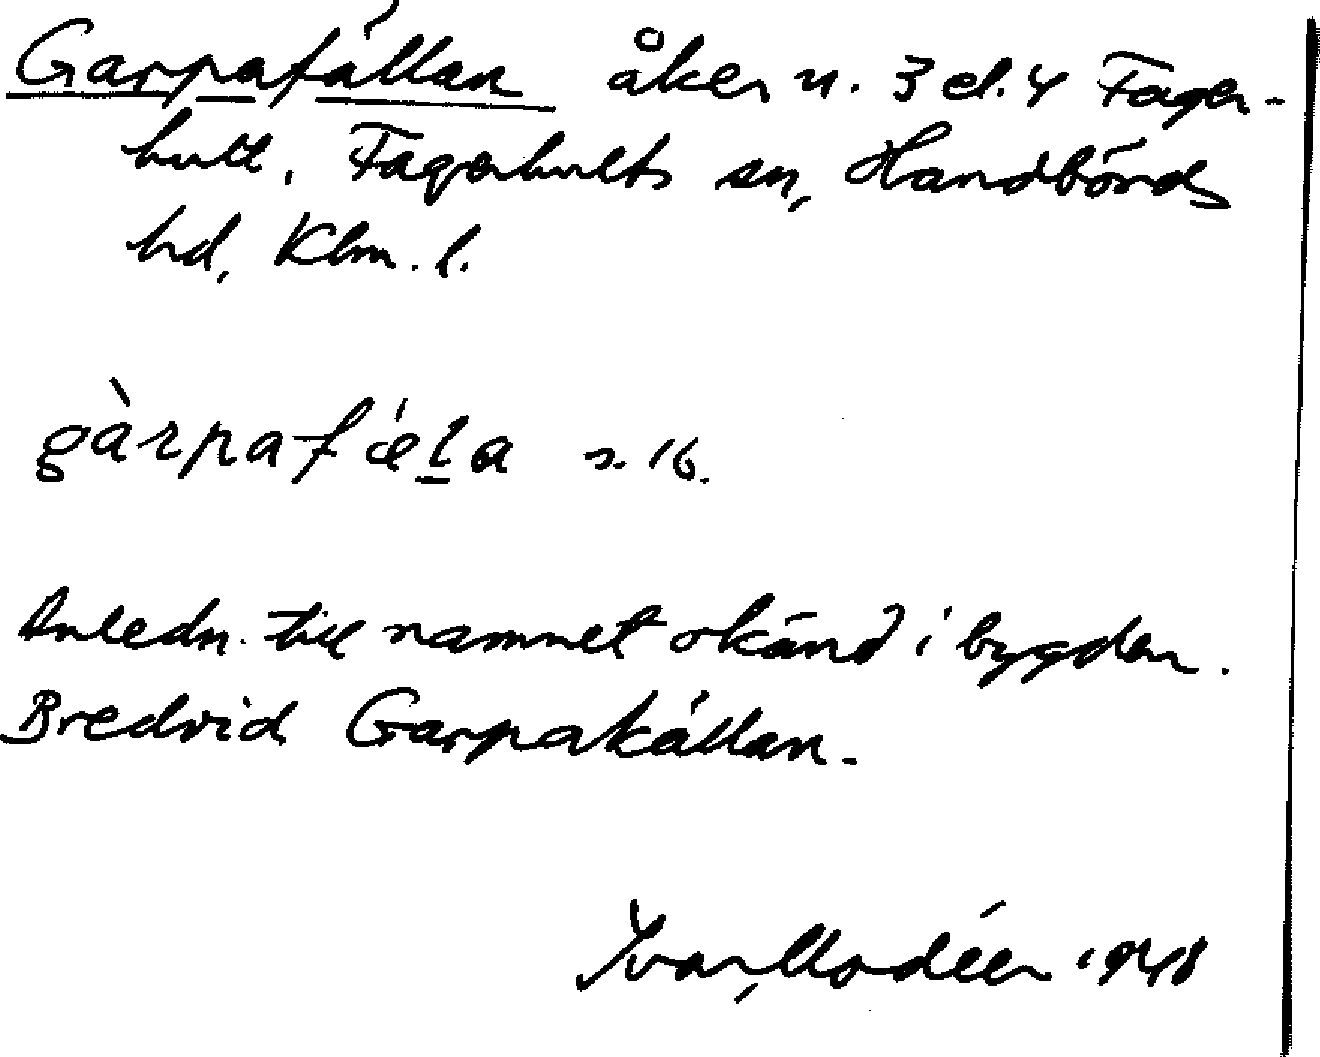 Garpafällan åker n. 3 el. 4 Fager-
hult, Fagerhults sn, Handbörds
hd, Klm. l.
gàrpafǽla s. 16.
Anledn. till namnet okänd i bygden.
Bredvid Garpakällan.
Ivar Modéer 1948